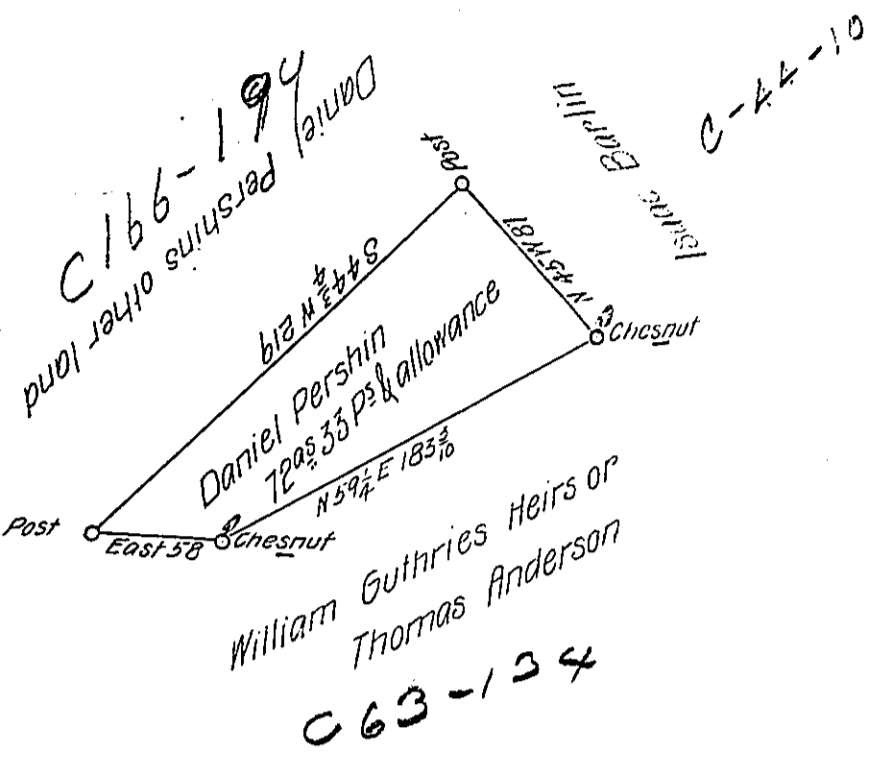 C166-194
Daniel Pershins other land
C-44-10
Isaac Barlin
Post
S 44 3/4 W 219
N 45 W 87
Chesnut
Daniel Pershin
72as 33 Ps & allowance
N 59 1/4 E 183 3/10
Post
East 58
Chesnut
William Guthries Heirs or
Thomas Anderson
C63-134